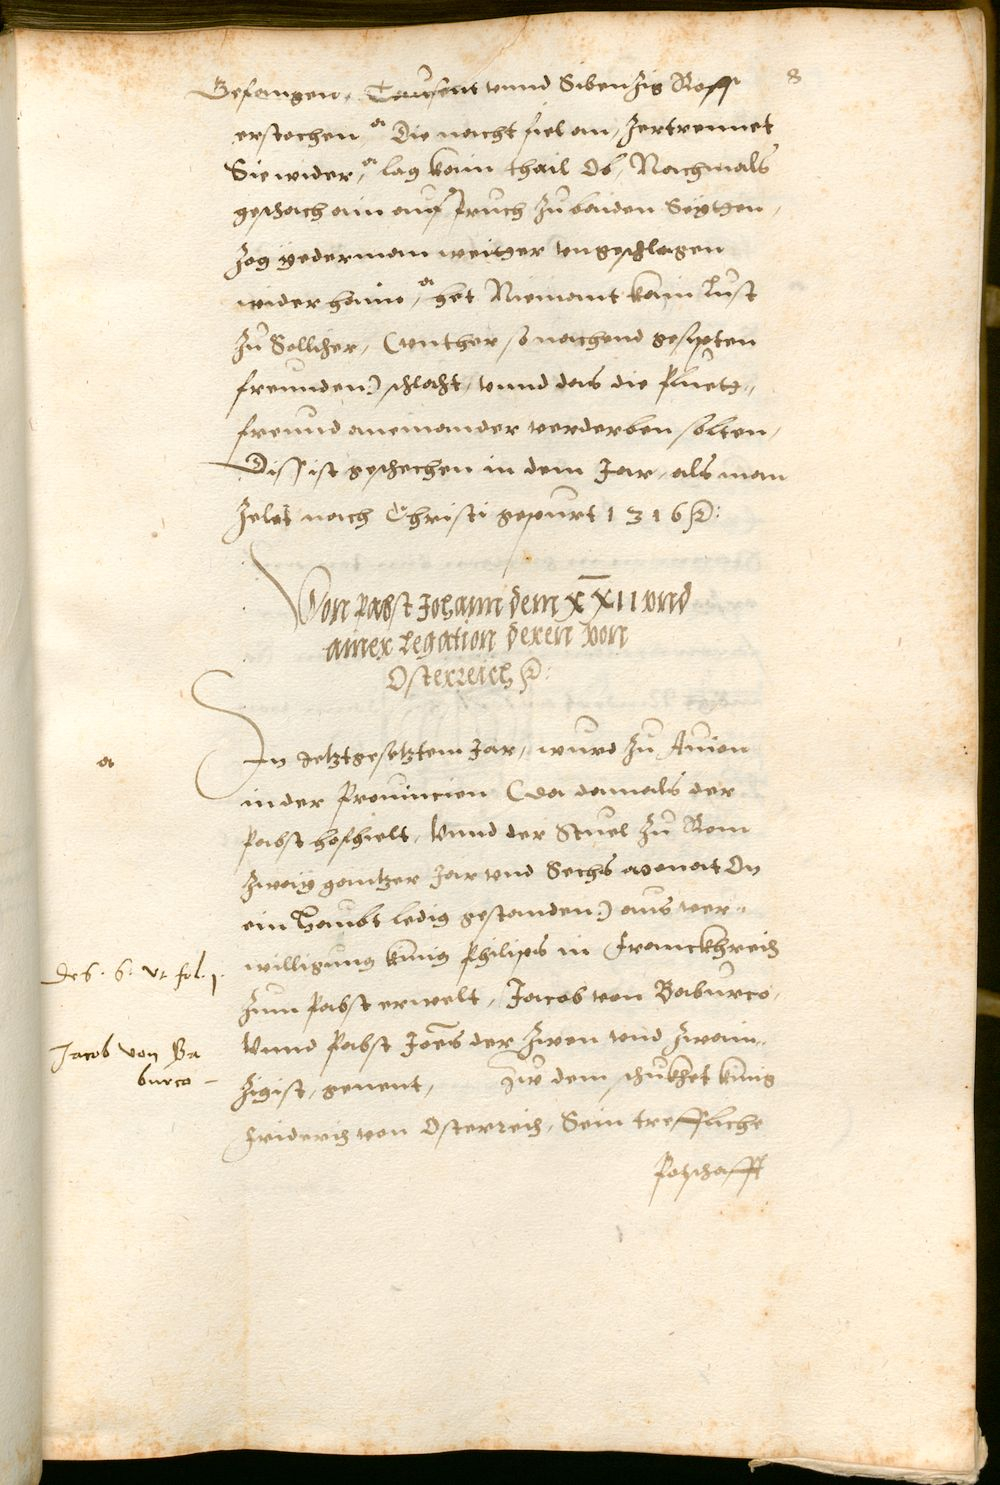 8
Gefangen, Tausent vnnd Sibenzig Ross
erstochen, a Die nacht fiel an, zertrennet
Sie wider, a lag kain thail Ob, Nachmals
geschach ain auf pruch zu baiden Seytten,
zog yederman weitter vngeschlagen
wider haim, a het Niemant kain lust
zu Sollicher, (vnther so nachend gesipten
freunden) schlacht, vnnd das die pluetz-
freund aneinander verderben solten,
Diss ist geschechen in dem Jar, als man
zelet nach Christi gepurt 1316 :
Von Pabst Johann dem XXII vnd
ainer Legation deren von
Osterreich :
a
In Jetztgesetztem Jar, wurd zu Auion
in der Prouincien (da damals der
Pabst hofhielt, Vnnd der Stuel zu Rom
zway gantzer Jar vnd Sechs monat On
ein Haubt ledig gestanden) aus ver-
willigung kunig Philips in Franckhreich
zum Pabst erwelt, Jacob von Baburco,
Vnnd Pabst Joēs der Zwen vnd Zwain-
zigist, genent, Zw dem schukhet kunig
Friderich von Osterreich, Sein treffliche
Potschafft
des . 6. vt fol. 1.
Jacob von Ba
burco -